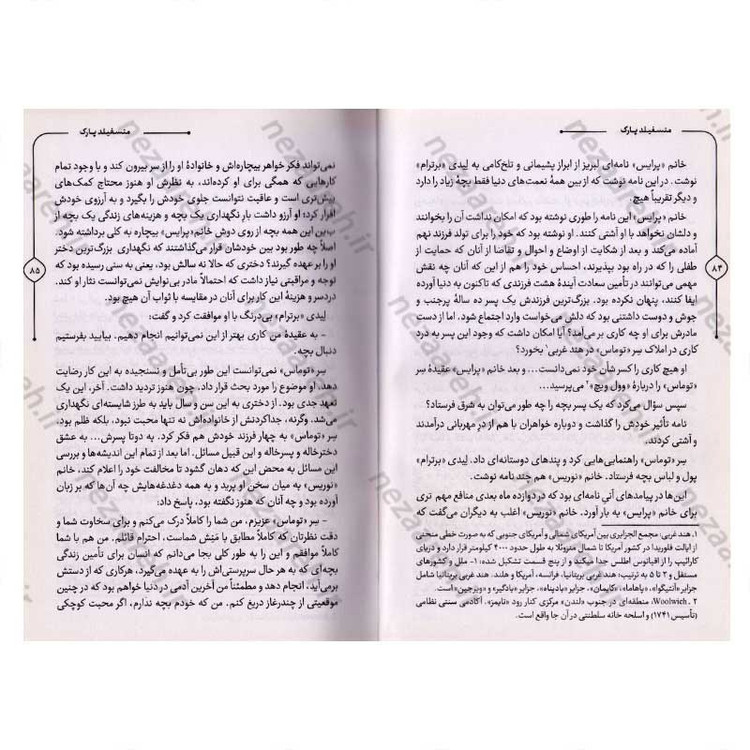 منسفیلد پارک
۸۴
خانم «پرایس» نامه‌ای لبریز از ابراز پشیمانی و تلخ‌کامی به لِیدی «برترام»
نوشت. در این نامه نوشت که از بین همهٔ نعمت‌های دنیا فقط بچهٔ زیاد را دارد
و دیگر تقریباً هیچ.
خانم «پرایس» این نامه را طوری نوشته بود که امکان نداشت آن را بخوانند
و دلشان نخواهد با او آشتی کنند. او نوشته بود که خود را برای تولد فرزند نهم
آماده می‌کند و بعد از شکایت از اوضاع و احوال و تقاضا از آنان که حمایت از
طفلی را که در راه بود بپذیرند، احساس خود را هم از این که آنان چه نقش
مهمی می‌توانند در تأمین سعادت آیندهٔ هشت فرزندی که تاکنون به دنیا آورده
ایفا کنند، پنهان نکرده بود. بزرگ‌ترین فرزندش یک پسر ده سالهٔ پرجنب و
جوش و دوست داشتنی بود که دلش می‌خواست وارد اجتماع شود. اما از دست
مادرش برای او چه کاری بر می‌آمد؟ آیا امکان داشت که وجود این پسر به درد
کاری در املاک سِر «توماس» در هند غربی۱ بخورد؟
او هیچ کاری را کسر شأن خود نمی‌دانست... و بعد خانم «پرایس» عقیدهٔ سِر
«توماس» را دربارهٔ «وول ویچ»۲ می‌پرسید...
سپس سؤال می‌کرد که یک پسر بچه را چه طور می‌توان به شرق فرستاد؟
نامه تأثیر خودش را گذاشت و دوباره خواهران با هم از در مهربانی درآمدند
و آشتی کردند.
سِر «توماس» راهنمایی‌هایی کرد و پندهای دوستانه‌ای داد. لِیدی «برترام»
پول و لباس بچه فرستاد. خانم «نوریس» هم چند نامه نوشت.
این‌ها در پیامدهای آنیِ نامه‌ای بود که در دوازده ماه بعدی منافع مهم تری
برای خانم «پرایس» به بار آورد. خانم «نوریس» اغلب به دیگران می‌گفت که
۱. هند غربی: مجمع الجزایری بین آمریکای شمالی و آمریکای جنوبی که به صورت خطی منحنی
از ایالت فلوریدا در کشور آمریکا تا شمال ونزوئلا به طول حدود ۴۰۰۰ کیلومتر قرار دارد و دریای
کارائیب را از اقیانوس اطلس جدا میکند و از پنج قسمت تشکیل شده: ۱- ملل و کشورهای
مستقل و ۲ تا ۵ به ترتیب: هند غربی بریتانیا، فرانسه، آمریکا و هلند. هند غربی بریتانیا شامل
جزایر «آنتیگوا»، «باهاما»، «کایمان»، جزایر «بادپناه»، جزایر «بادگیر» و «ویرجین» است.
۲ ـ Woolwich، منطقه‌ای در جنوب «لندن» مرکزی کنار رود «تایمز». آکادمی سنتی نظامی
(تأسیس ۱۷۴۱) و اسلحه خانه سلطنتی در آن جا واقع است.
منسفیلد پارک
۸۵
نمی‌تواند فکر خواهر بیچاره‌اش و خانوادهٔ او را از سر بیرون کند و با وجود تمام
کارهایی که همگی برای او کرده‌اند، به نظرش او هنوز محتاج کمک‌های
بیش‌تری است و عاقبت نتوانست جلوی خودش را بگیرد و به آرزوی خودش
اقرار کرد؛ او آرزو داشت بارِ نگهداری یک بچه و هزینه‌های زندگی یک بچه از
بین این همه بچه از روی دوش خانم «پرایس» بیچاره به کلی برداشته شود.
اصلاً چه طور بود بین خودشان قرار می‌گذاشتند که نگهداری بزرگ‌ترین دختر
را بر عهده گیرند؟ دختری که حالا نه سالش بود، یعنی به سنی رسیده بود که
توجه و مراقبتی نیاز داشت که احتمالاً مادر بی‌نوایش نمی‌توانست نثار او کند.
دردسر و هزینهٔ این کار برای آنان در مقایسه با ثواب آن هیچ بود.
لِیدی «برترام» بی‌درنگ با او موافقت کرد و گفت:
ـ به عقیدهٔ من کاری بهتر از این نمی‌توانیم انجام دهیم. بیایید بفرستیم
دنبال بچه.
سِر «توماس» نمی‌توانست این طور بی‌تأمل و نسنجیده به این کار رضایت
دهد. او موضوع را مورد بحث قرار داد، چون هنوز تردید داشت. آخر، این یک
تعهد جدی بود. از دختری به این سن و سال باید به طرز شایسته‌ای نگهداری
می‌شد. وگرنه، جداکردنش از خانواده‌اش نه تنها محبت نبود، بلکه ظلم بود.
سِر «توماس» به چهار فرزند خودش هم فکر کرد. به دوتا پسرش... به عشق
دخترخاله و پسرخاله و این قبیل مسائل. اما بعد از تمام این اندیشه‌ها و بررسی
این مسائل به محض این که دهان گشود تا مخالفت خود را اعلام کند، خانم
«نوریس» به میان سخن او پرید و به همه دغدغه‌هایش چه آن‌ها که بر زبان
آورده بود و چه آنان که هنوز نگفته بود، پاسخ داد:
ـ سِر «توماس» عزیزم، من شما را کاملاً درک می‌کنم و برای سخاوت شما و
دقت نظرتان که کاملاً مطابق با مَنِش شماست، احترام قائلم. من هم با شما
کاملاً موافقم و این را به طور کلی بجا می‌دانم که انسان برای تأمین زندگی
بچه‌ای که به هر حال سرپرستی‌اش را به عهده می‌گیرد، هرکاری که از دستش
برمی‌آید، انجام دهد و مطمئناً من آخرین آدمی در دنیا خواهم بود که در چنین
موقعیتی از چندرغاز دریغ کنم. من که خودم بچه ندارم، اگر محبت کوچکی
nezaareh.ir